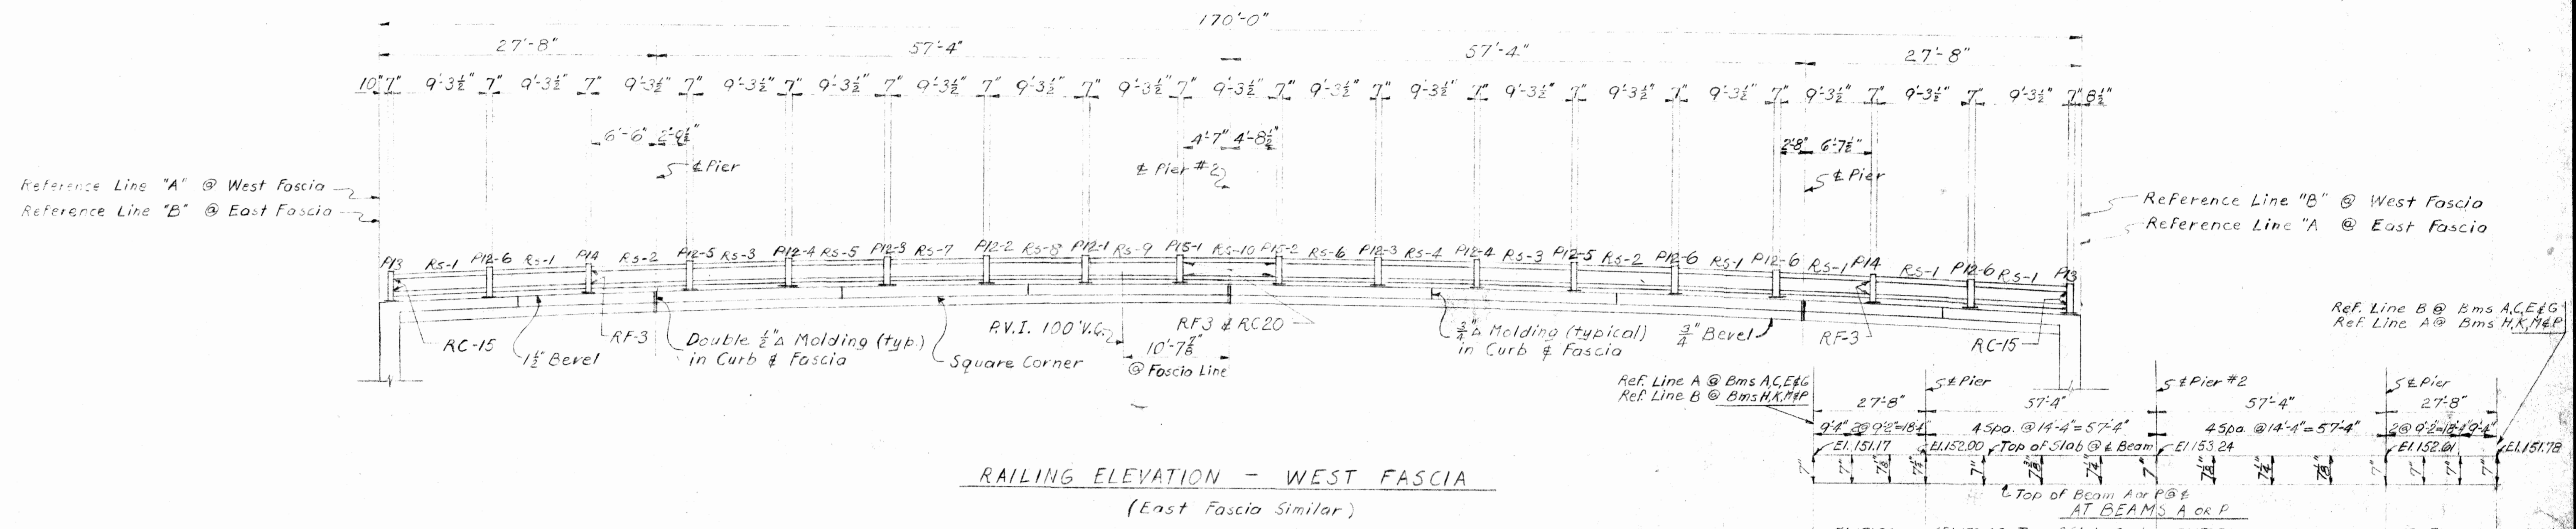 170'-0"
27'-8" 57'-4" 57'-4" 27'-8"
10" 7" 9'-3½" 7" 9'-3½" 7" 9'-3½" 7" 9'-3½" 7" 9'-3½" 7" 9'-3½" 7" 9'-3½" 7" 9'-3½" 7" 9'-3½" 7" 9'-3½" 7" 9'-3½" 7" 9'-3½" 7" 9'-3½" 7" 9'-3½" 7" 9'-3½" 7" 9'-3½" 7" 9'-3½" 7" 8½"
6'-6" 2'-9½" 4'-7" 4'-8½" 2'-8" 6'-7½"
℄ Pier ℄ Pier #2 ℄ Pier
Reference Line "A" @ West Fascia
Reference Line "B" @ East Fascia
Reference Line "B" @ West Fascia
Reference Line "A @ East Fascia
P13 RS-1 P12-6 RS-1 P14 RS-2 P12-5 RS-3 P12-4 RS-5 P12-3 RS-7 P12-2 RS-8 P12-1 RS-9 P15-1 RS-10 P15-2 RS-6 P12-3 RS-4 P12-4 RS-3 P12-5 RS-2 P12-6 RS-1 P12-6 RS-1 P14 RS-1 P12-6 RS-1 P13
RC-15
1½" Bevel
RF-3
Double ½" Δ Molding (typ.)
in Curb & Fascia
Square Corner
P.V.I. 100' V.C.
10'-7⅞"
@ Fascia Line
RF3 & RC20
¾" Δ Molding (typical)
in Curb & Fascia
¾" Bevel
RF-3
RC-15
RAILING ELEVATION - WEST FASCIA
(East Fascia Similar)
Ref. Line B @ Bms A,C,E&G
Ref. Line A @ Bms H,K,M&P
Ref. Line A @ Bms A,C,E&G
Ref. Line B @ Bms H,K,M&P
℄ Pier ℄ Pier #2 ℄ Pier
27'-8" 57'-4" 57'-4" 27'-8"
9'-4" 2@ 9'-2"=18'-4" 4 Spa. @ 14'-4"=57'-4" 4 Spa. @ 14'-4"=57'-4" 2@ 9'-2"=18'-4" 9'-4"
El.151.17 El.152.00 Top of Slab @ ℄ Beam El.153.24 El.152.61 El.151.78
7" 7" 7" 7" 7" 7" 7" 7"
Top of Beam A or P @ ℄
AT BEAMS A OR P